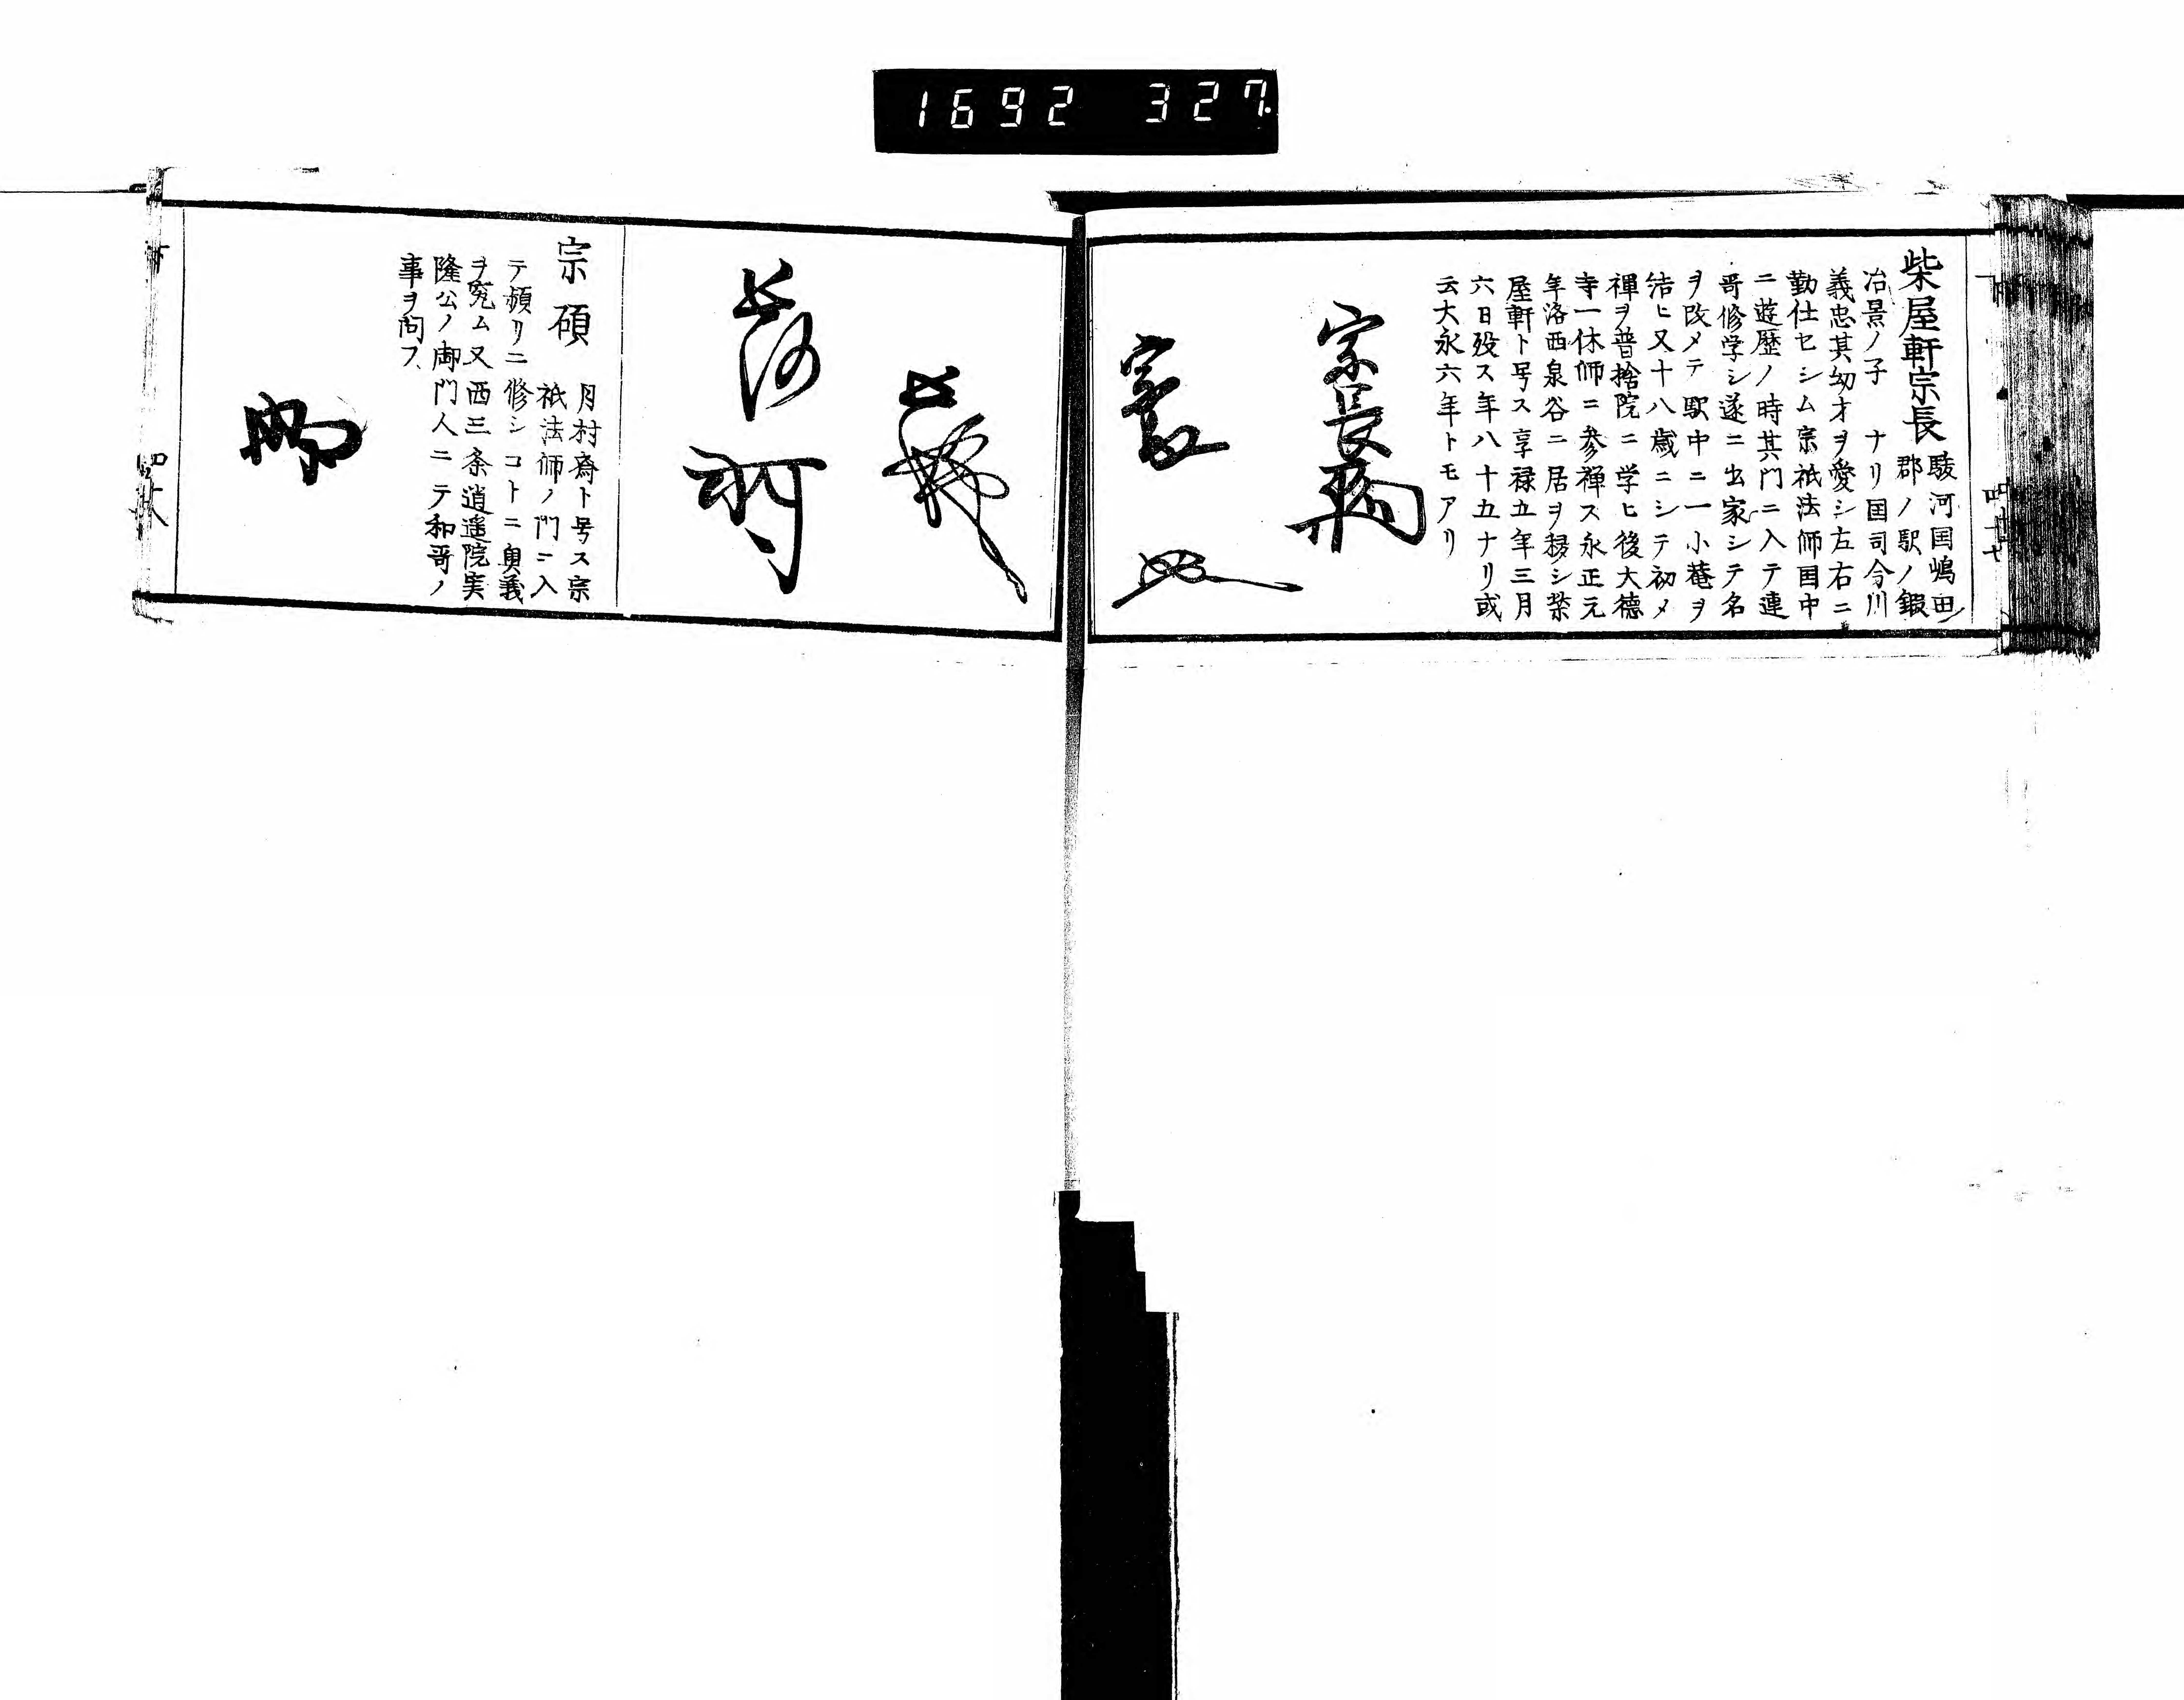 1692 327
柴屋軒宗長
駿河国嶋田ノ
郡ノ駅ノ鍛
冶景ノ子 ナリ国司今川
義忠其幼才ヲ愛シ左右ニ
勤仕セシム宗祇法師国中
ニ遊歴ノ時其門ニ入テ連
哥修学シ遂ニ出家シテ名
ヲ改メテ駅中ニ一小菴ヲ
結ヒ又十八歳ニシテ初メ
禪ヲ普捨院ニ学ヒ後大徳
寺一休師ニ参禅ス永正元
年洛西泉谷ニ居ヲ移シ柴
屋軒ト号ス享禄五年三月
六日歿ス年八十五ナリ或
云大永六年トモアリ
宗長
宗碩
月村齋ト号ス宗
祇法師ノ門ニ入
テ頻リニ修シコトニ奥義
ヲ究ム又西三条逍遥院実
隆公ノ御門人ニテ和哥ノ
事ヲ問フ